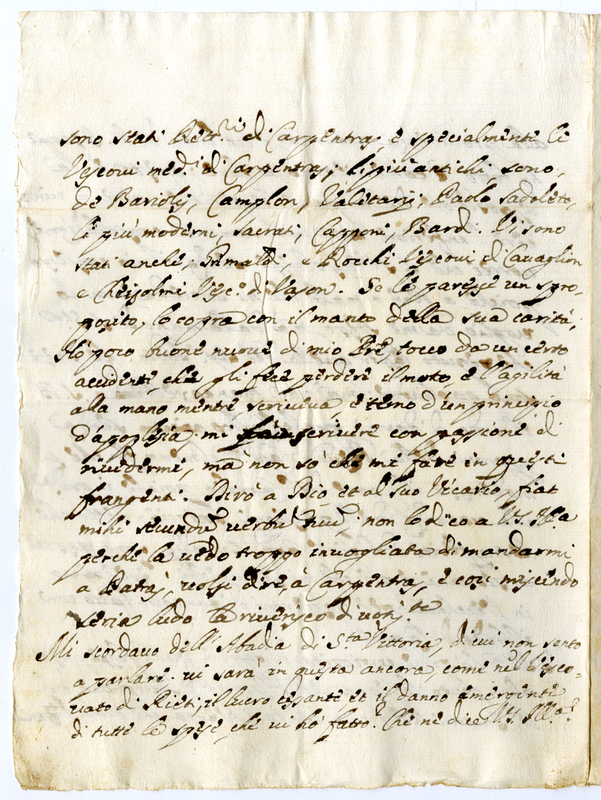 sono stati Rett.ri di Carpentras, e specialmente li
Vescovi med.i di Carpentras, li più antichi sono
de Barioli, Camplon, Valetarij, Paolo Sadoleto,
li più moderni, Sacrati, Capponi, Bardi. Vi sono
stati anche, Grimaldi e Rocchi Vescovi di Cavaglion
e Cheisolmi Vesc.o di Vason. Se le paresse un spro-
posito, lo copra con il manto della sua carità,
Hò poco buone nuove di mio Pre tocco da un certo
accidente, che gli fece perdere il moto, e l'agilità
alla mano mentre scriveva, e temo d'un principio
d'apoplesia mi scrivere con passione di
rivedermi, mà non sò che mi fare in questi
frangenti. Dirò a Dio et al suo Vicario, fiat
mihi secundu verbu tuu, non lo dico a V.S. Ill.a
perche la vedo troppo invogliata di mandarmi
a Patras, volsi dire, à Carpentras, e così miscendo
seria ludo la riverisco divotis.te
Mi scordavo dell'Abadia di S.ta Vittoria, di cui non sento
a parlare. vi sarà in questa ancora, come nel Vesco-
vato di Rieti, il lucro cessante et il danno emergente
di tutte le spese, che vi hò fatto. Che ne dice V.S. Ill.a?